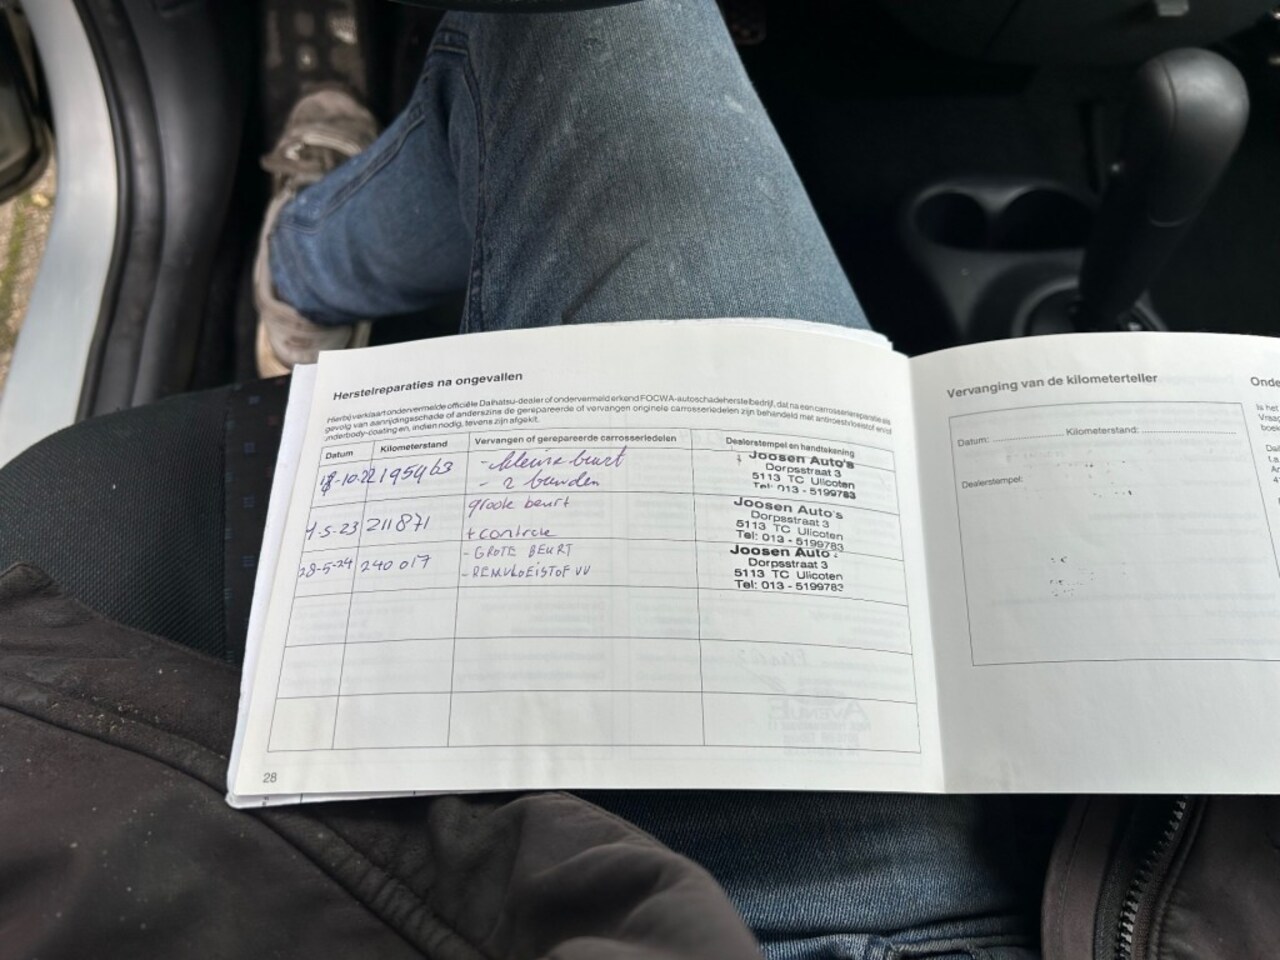 Herstelreparaties na ongevallen
Hierbij verklaart ondervermelde officiële Daihatsu-dealer of ondervermeld erkend FOCWA-autoschadeherstelbedrijf, dat na een carrosseriereparatie als
gevolg van aanrijdingsschade of anderszins de gerepareerde of vervangen originele carrosseriedelen zijn behandeld met antiroestvloeistof en/of
underbody-coating en, indien nodig, tevens zijn afgekit.
Datum Kilometerstand Vervangen of gerepareerde carrosseriedelen Dealerstempel en handtekening
18-10-22 195463 - kleine beurt
- 2 banden
Joosen Auto's
Dorpsstraat 3
5113 TC Ulicoten
Tel: 013 - 5199783
4-5-23 211871 groote beurt
+ controle
Joosen Auto's
Dorpsstraat 3
5113 TC Ulicoten
Tel: 013 - 5199783
28-5-24 240 017 - GROTE BEURT
- REMVLOEISTOF VV
Joosen Auto
Dorpsstraat 3
5113 TC Ulicoten
Tel: 013 - 5199783
28
Vervanging van de kilometerteller
Datum: Kilometerstand:
Dealerstempel:
Is het